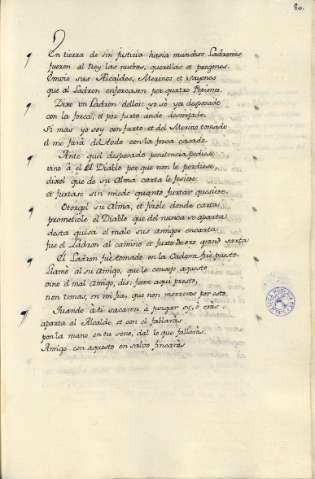 80.
En tierra de sin justicia havia munchos Ladrones
fueron al Rey las nuebas, querellas et pregones.
Embió sus Alcaldes, Merinos et Sayones
que al Ladron enforcasen por quatro Pepiones.
Dixo un Ladron dellos yo só ya desposado
con la forca, et por furto ando desorejado.
Si mas yo soy con furto et del Merino tomado
él me fará del todo con la forca casado.
Ante quel desposado penitencia pediese
vino á él El Diablo por que non le perdiese,
dixol que de su Alma carta le feciese
et furtase sin miedo quanto furtar quesiese
Otorgol su Alma, et fizole dende carta,
prometiole el Diablo que del nunca se aparta
desta guisa el malo sus amigos encarta
fue el Ladron al camino et furtó de oro grand sarta
El Ladron fué tomado en la Cadena fué puesto
llamó al su Amigo, que le consejó aquesto
vino el mal Amigo, dis: feme aqui presto,
non temas, en mi fias, que non morrerás por esto
Quando á ti sacaren á judgar oy, ó cras
aparta al Alcalde, et con él fablarás
pon la mano en tu seno, dal lo que fallarás
Amigo con aquesto en salvo fincarás